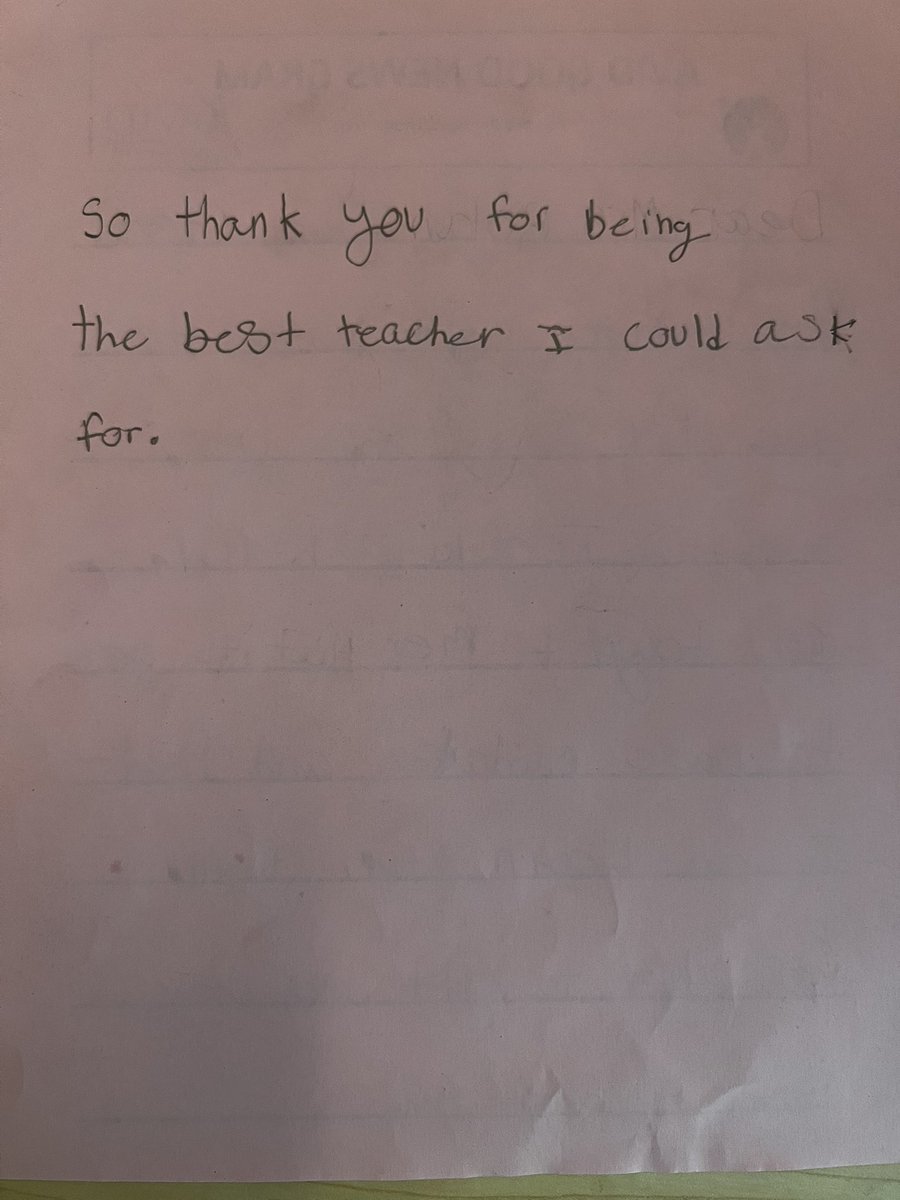 So thank you for being
the best teacher I could ask
for.